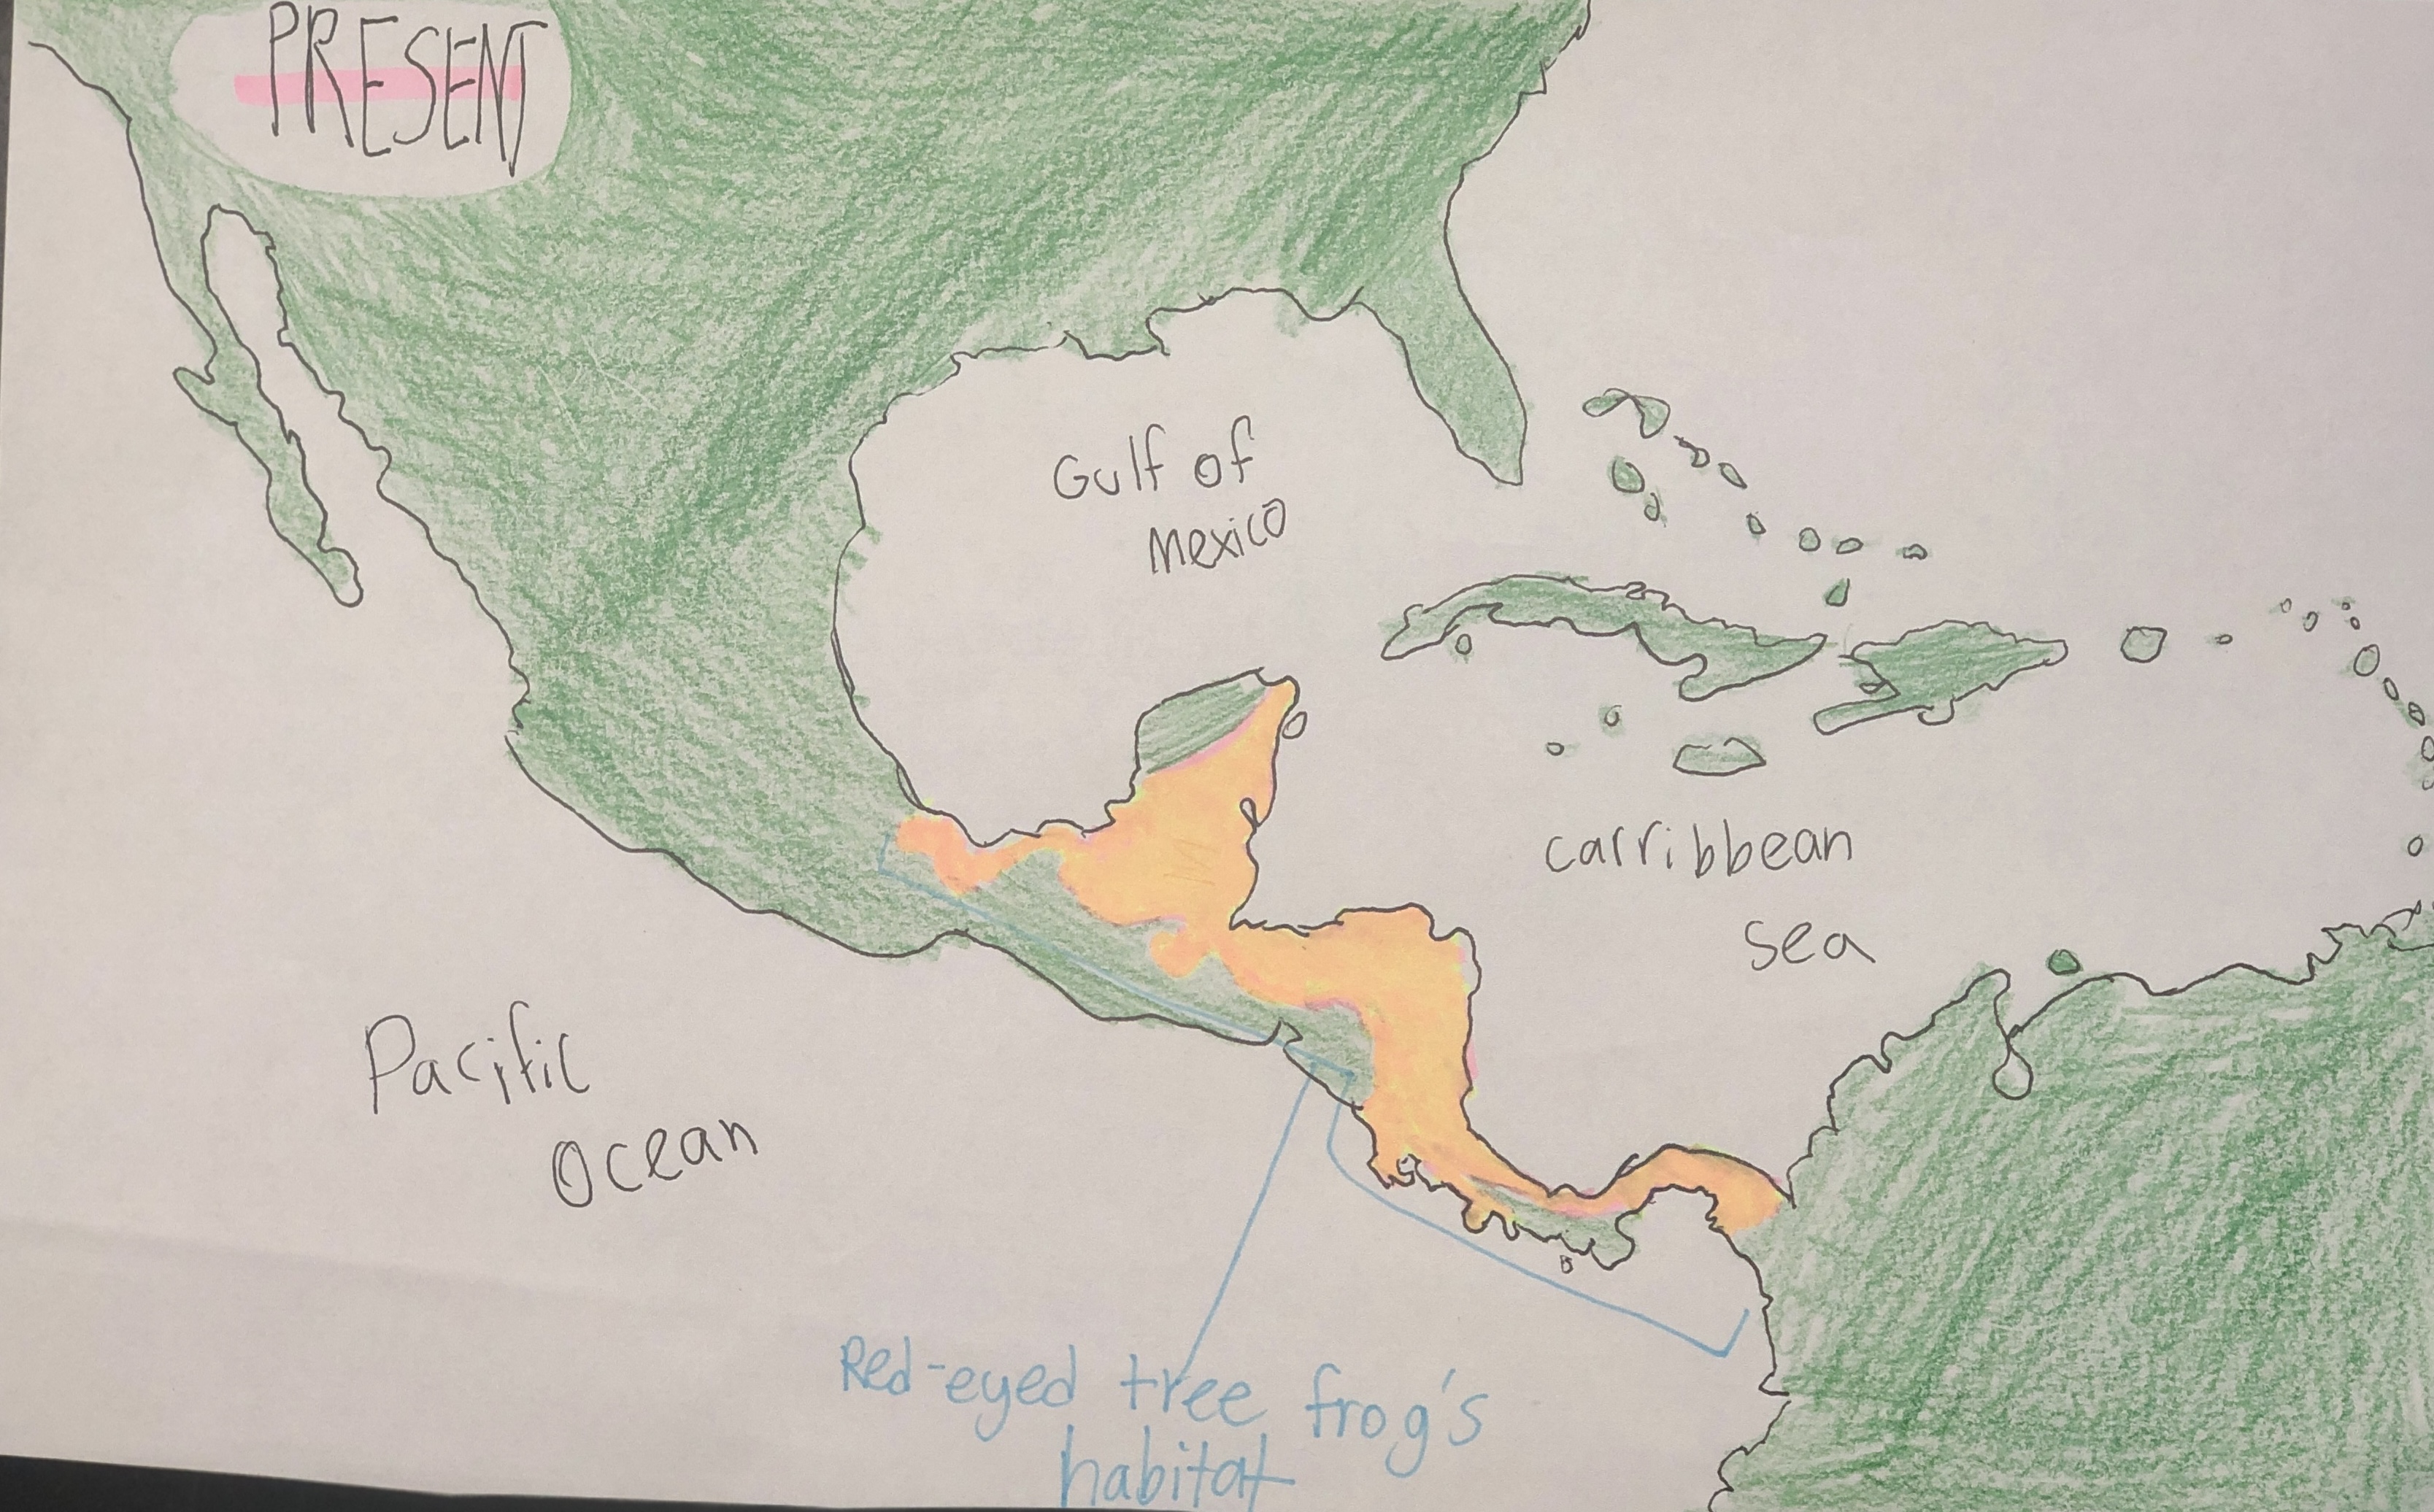 PRESENT
Gulf of
Mexico
Carribbean
Sea
Pacific
Ocean
Red-eyed tree frog's
habitat